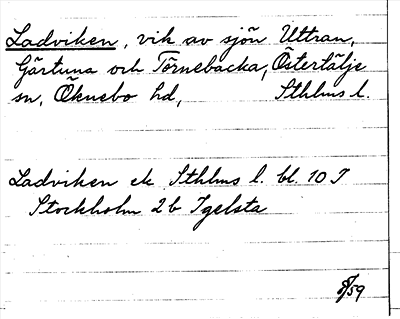 Ladviken, vik av sjön Uttran,
Gärtuna och Törnebacka, Östertälje
sn, Öknebo hd, Sthlms l.
Ladviken ek Sthlms l. bl. 10 I
Stockholm 2b Igelsta